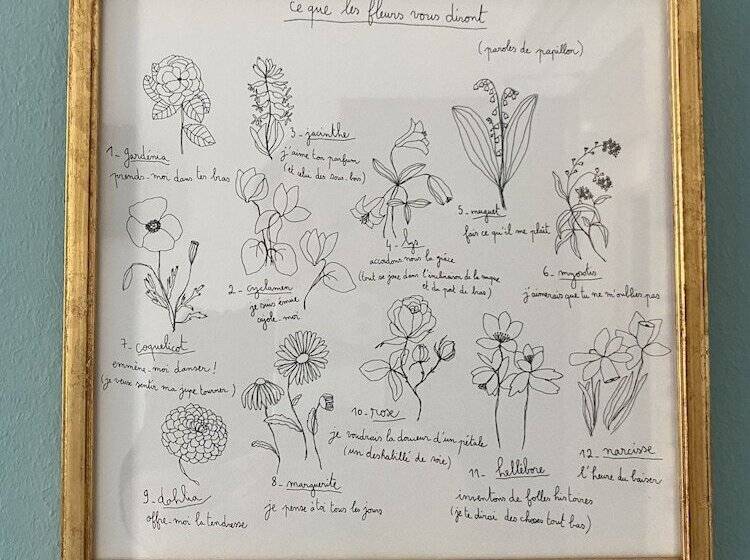 ce que les fleurs vous diront
(paroles de papillon)
1- gardénia
prends-moi dans tes bras
3- jacinthe
j'aime ton parfum
(et celui des sous-bois)
5- muguet
fais ce qu'il me plaît
4- lys
accordons nous la grâce
(tout se joue dans l'inclinaison de la nuque
et du port de bras)
6- myosotis
j'aimerais que tu ne m'oublies pas
2- cyclamen
je suis émue
cajole-moi
7- coquelicot
emmène-moi danser !
(je veux sentir ma jupe tourner)
10- rose
je voudrais la douceur d'un pétale
(un deshabillé de soie)
12- narcisse
l'heure du baiser
11- hellébore
inventons de folles histoires
(je te dirai des choses tout bas)
8- marguerite
je pense à toi tous les jours
9- dahlia
offre-moi la tendresse